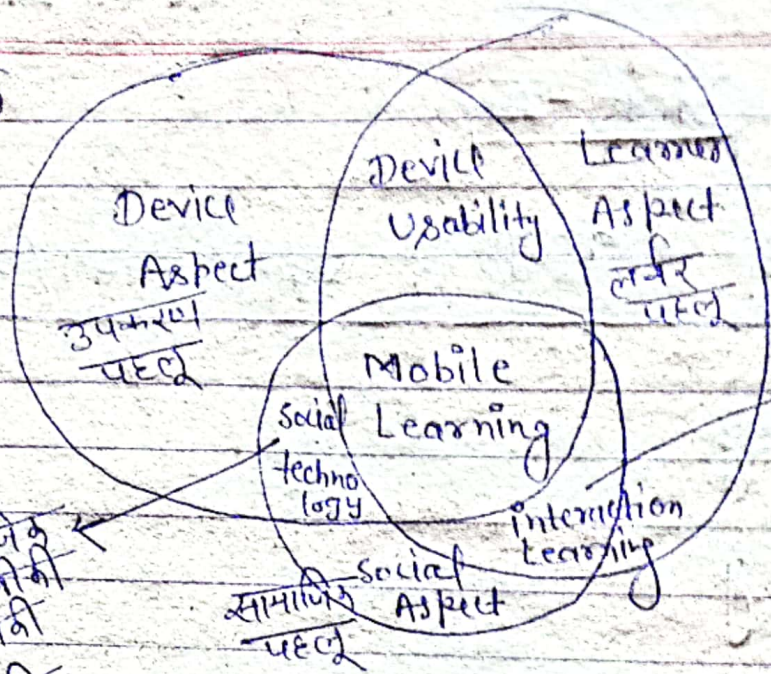 Device
Aspect
उपकरण
पहलू
Device
Usability
Learner
Aspect
लर्नर
पहलू
Mobile
Learning
Social
techno
logy
interaction
Learning
Social
Aspect
सामाजिक
पहलू